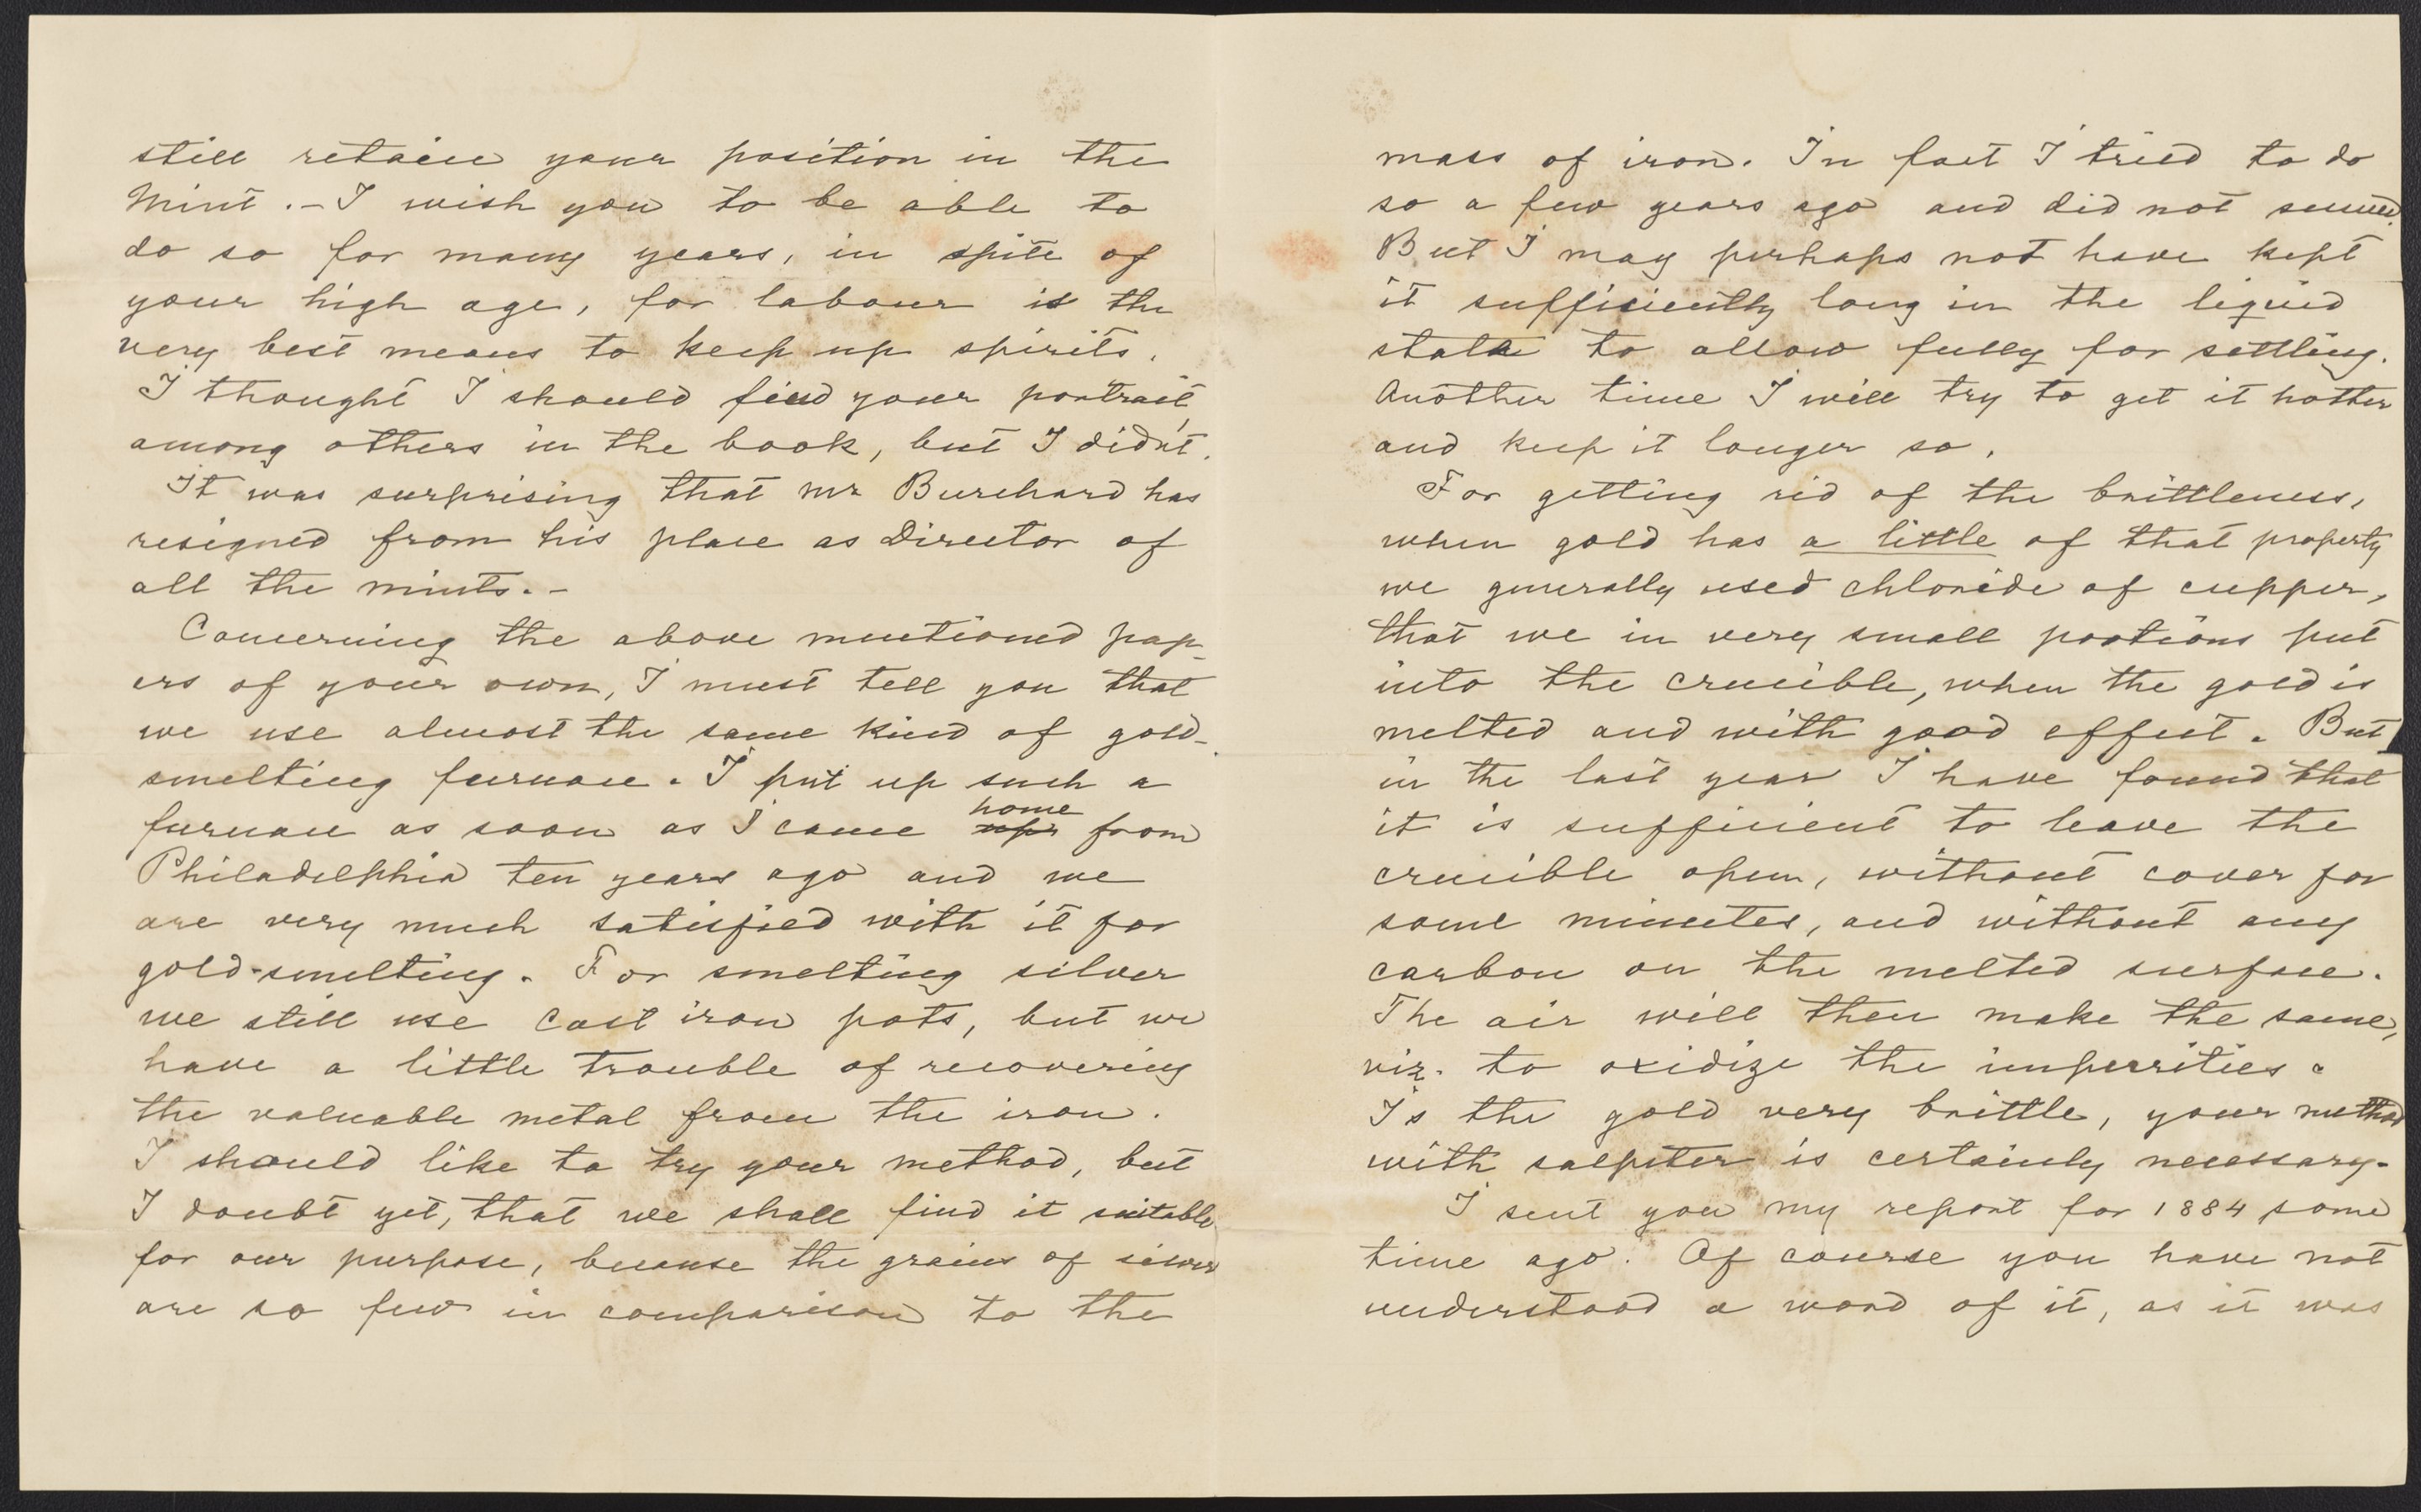 still retain your position in the
Mint. - I wish you to be able to
do so for many years, in spite of
your high age, for labour is the
very best means to keep up spirits.
I thought I should find your portrait
among others in the book, but I didn't.
It was surprising that mr Burchard has
resigned from his place as Director of
all the mints. -
Concerning the above mentioned pap-
ers of your own, I must tell you that
we use almost the same kind of gold-
smelting furnace. I put up such a
home
furnace as soon as I came from
Philadelphia ten years ago and we
are very much satisfied with it for
gold-smelting. For smelting silver
we still use cast iron pots, but we
have a little trouble of recovering
the valuable metal from the iron.
I should like to try your method, but
I doubt yet, that we shall find it suitable
for our purpose, because the grains of silver
are so few in comparison to the
mass of iron. In fact I tried to do
so a few years ago and did not succeed.
But I may perhaps not have kept
it sufficiently long in the liquid
state to allow fully for settling.
Another time I will try to get it hotter
and keep it longer so.
For getting rid of the brittleness,
when gold has a little of that property
we generally used chloride of cupper,
that we in very small portions put
into the crucible, when the gold is
melted and with good effect. But
in the last year I have found that
it is sufficient to leave the
crucible open, without cover for
some minutes, and without any
carbon on the melted surface.
The air will then make the same,
viz. to oxidize the impurities.
Is the gold very brittle, your method
with salpeter is certainly necessary.
I sent you my report for 1884 some
time ago. Of course you have not
understood a word of it, as it was